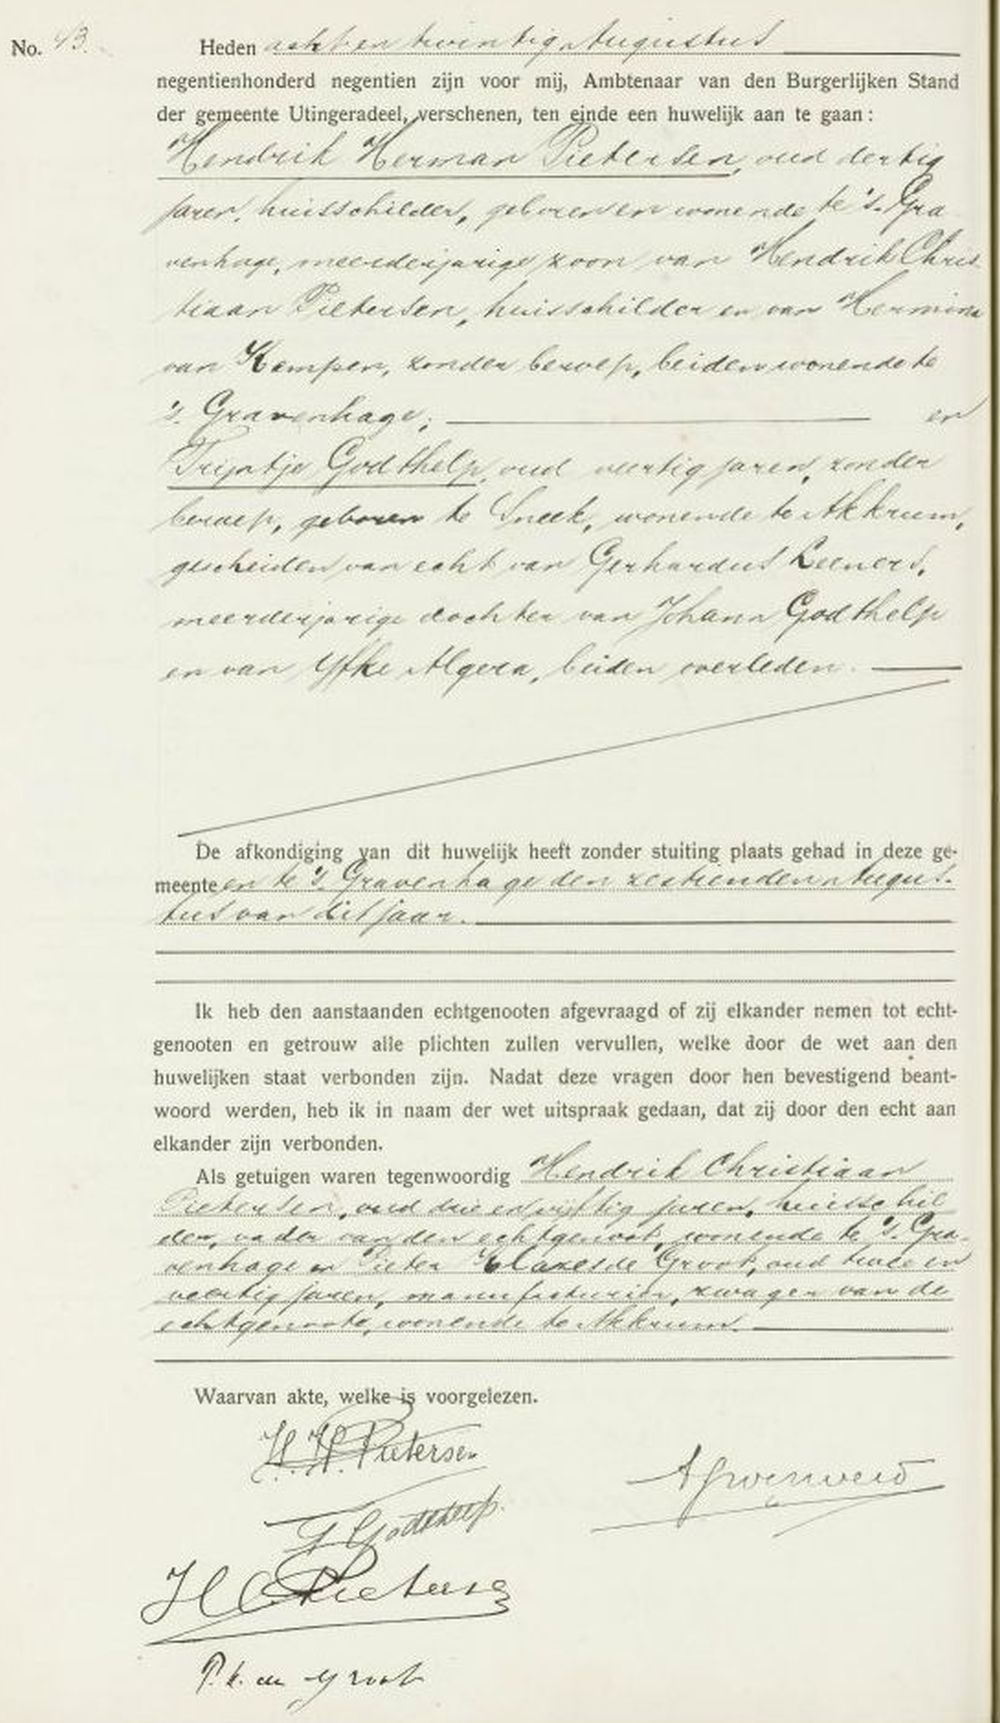 No. 43.
Heden acht en twintig Augustus
negentienhonderd negentien zijn voor mij, Ambtenaar van den Burgerlijken Stand
der gemeente Utingeradeel, verschenen, ten einde een huwelijk aan te gaan:
Hendrik Herman Pietersen, oud dertig
jaren, huisschilder, geboren en wonende te 's-Gra
venhage, meerderjarige zoon van Hendrik Chris
tiaan Pietersen, huisschilder en van Hermina
van Kempen, zonder beroep, beiden wonende te
's Gravenhage; en
Trijntje Godthelp, oud veertig jaren, zonder
beroep, geboren te Sneek, wonende te Akkrum,
gescheiden van echt van Gerhardus Leeners,
meerderjarige dochter van Johann Godthelp
en van Yfke Algera, beiden overleden.
De afkondiging van dit huwelijk heeft zonder stuiting plaats gehad in deze ge-
meente en te 's Gravenhage den zestienden Augus-
tus van dit jaar.
Ik heb den aanstaanden echtgenooten afgevraagd of zij elkander nemen tot echt-
genooten en getrouw alle plichten zullen vervullen, welke door de wet aan den
huwelijken staat verbonden zijn. Nadat deze vragen door hen bevestigend beant-
woord werden, heb ik in naam der wet uitspraak gedaan, dat zij door den echt aan
elkander zijn verbonden.
Als getuigen waren tegenwoordig Hendrik Christiaan
Pietersen, oud drie en vijftig jaren, huisschil
der, vader van den echtgenoot, wonende te 's Gra-
venhage en Pieter Klazes de Groot, oud twee en
veertig jaren, manufacturier, zwager van de
echtgenoote, wonende te Akkrum.
Waarvan akte, welke is voorgelezen.
H. H. Pietersen
T Godthelp.
H C Pietersen
P. K. de Groot